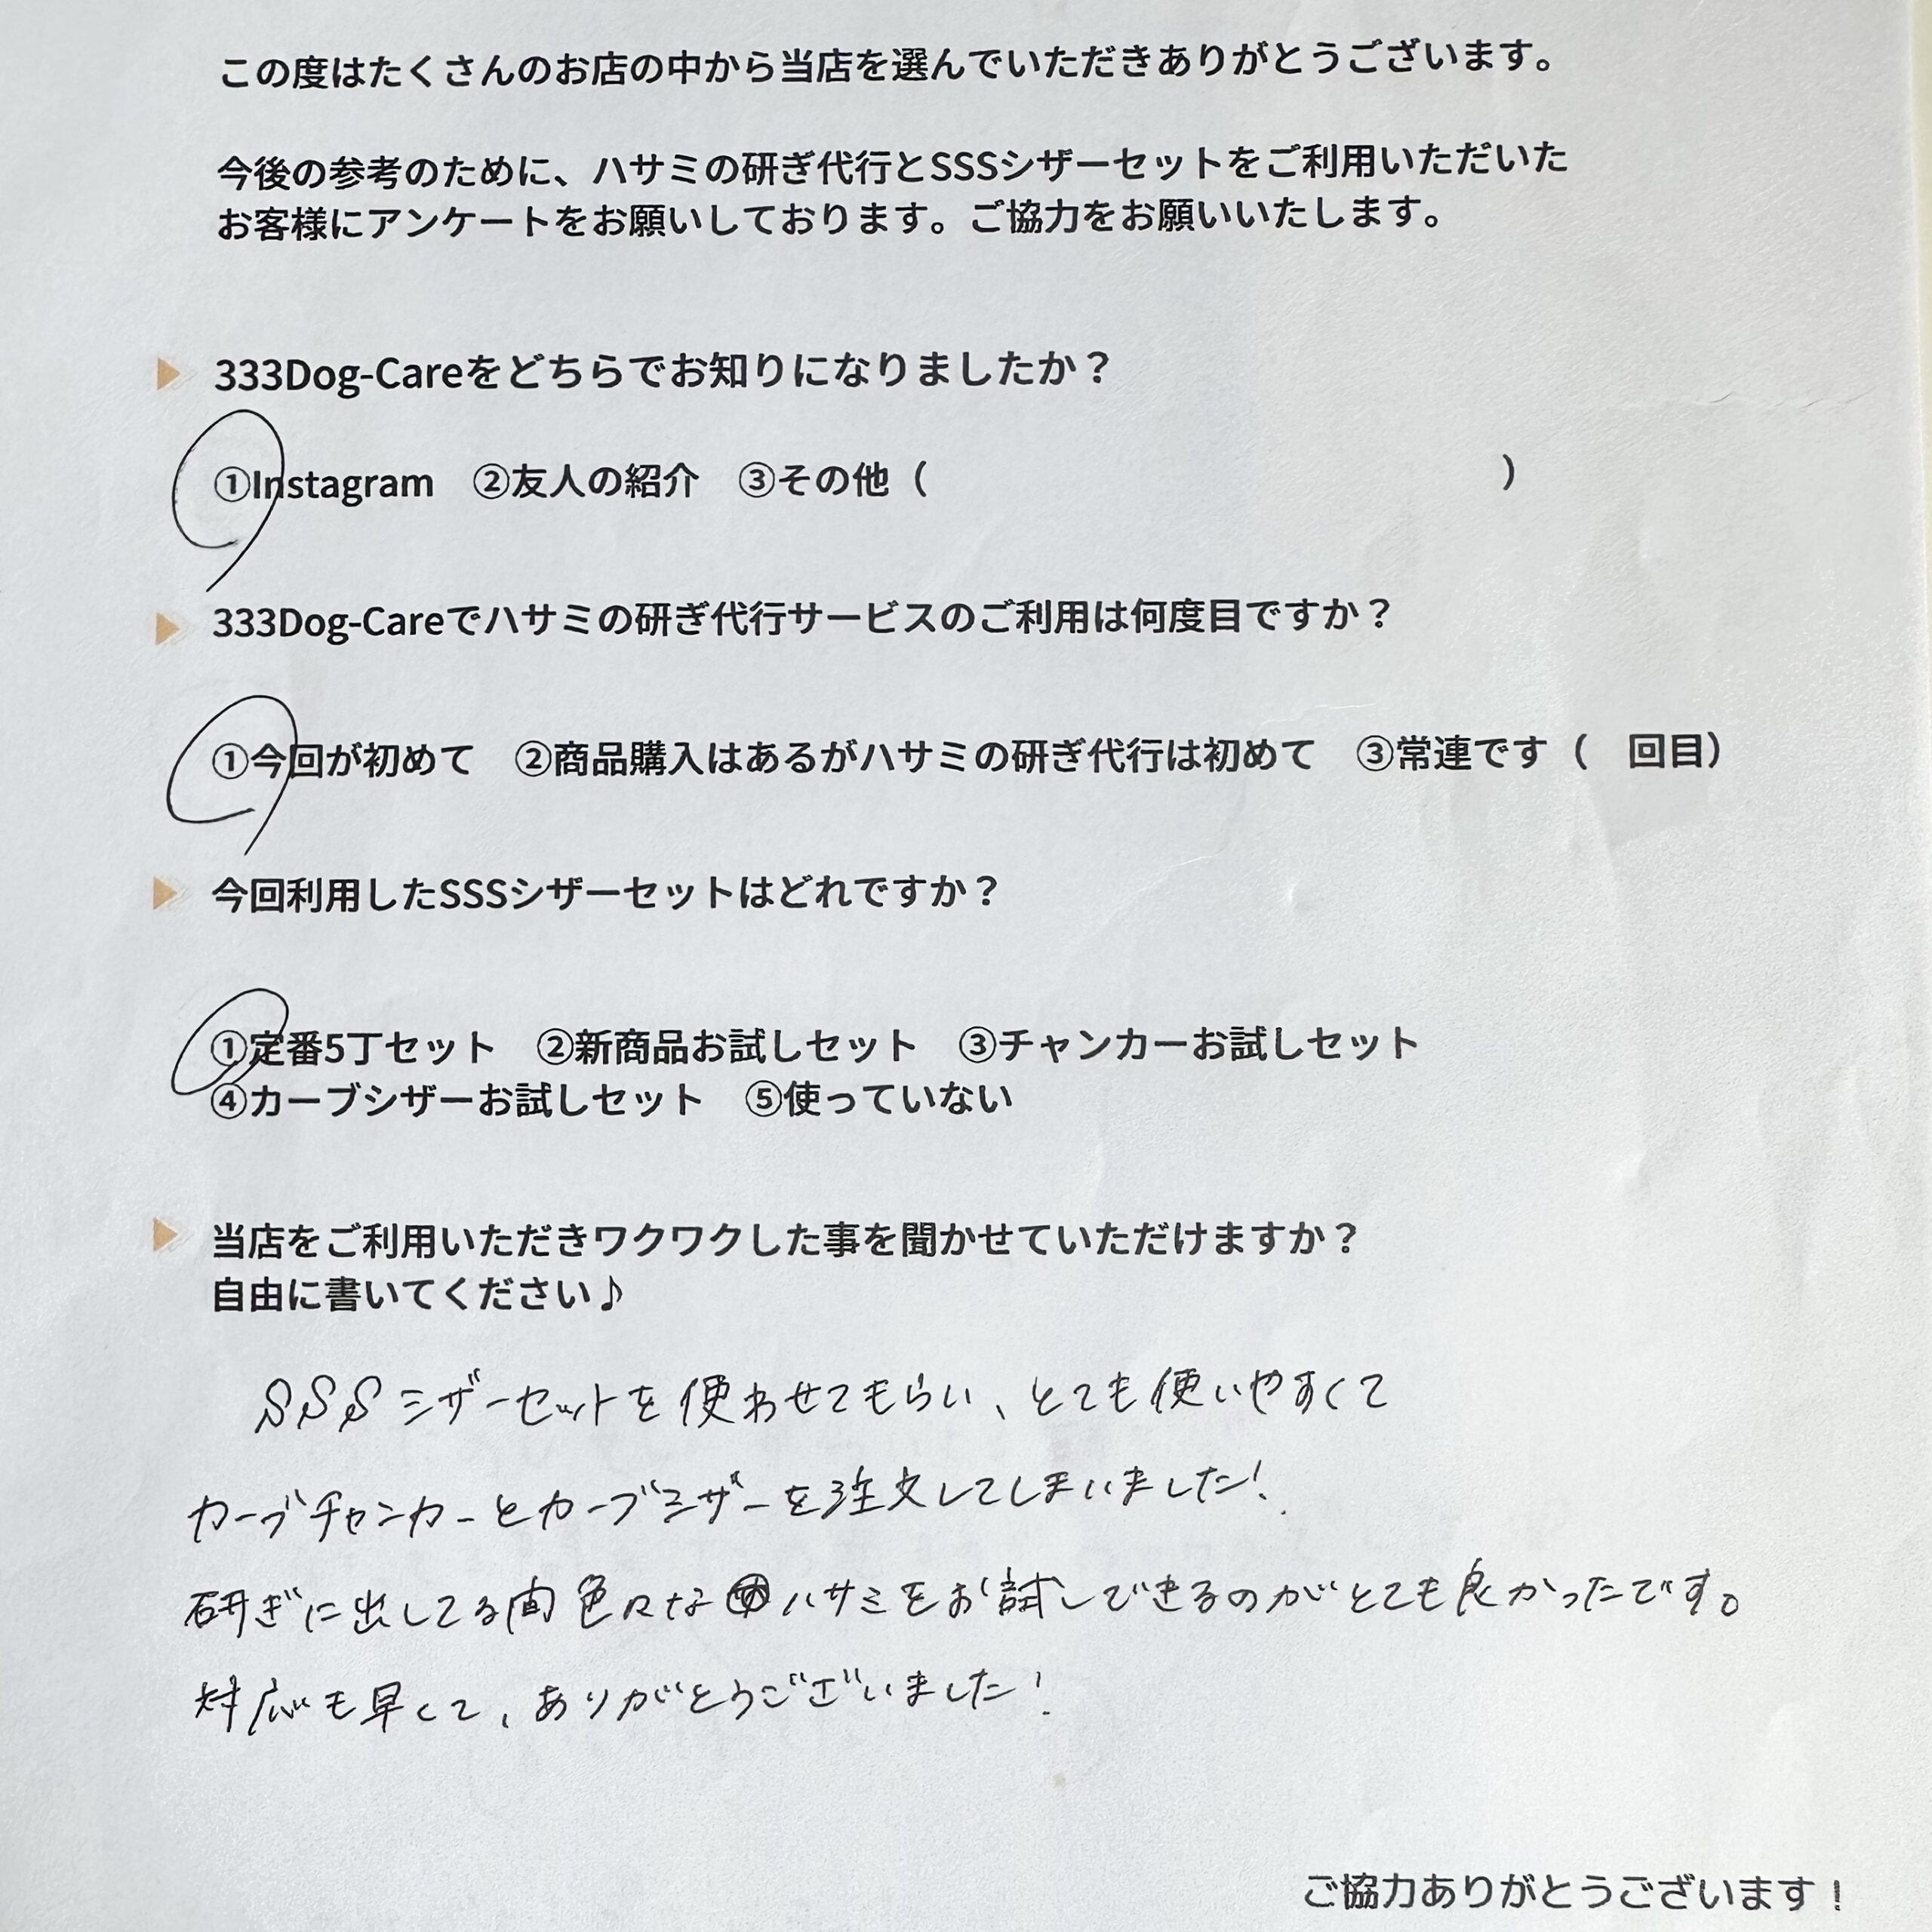 この度はたくさんのお店の中から当店を選んでいただきありがとうございます。
今後の参考のために、ハサミの研ぎ代行とSSSシザーセットをご利用いただいた
お客様にアンケートをお願いしております。ご協力をお願いいたします。
333Dog-Careをどちらでお知りになりましたか？
①Instagram　②友人の紹介　③その他（　　　　　　　　　　　　　　　）
333Dog-Careでハサミの研ぎ代行サービスのご利用は何度目ですか？
①今回が初めて　②商品購入はあるがハサミの研ぎ代行は初めて　③常連です（　回目）
今回利用したSSSシザーセットはどれですか？
①定番5丁セット　②新商品お試しセット　③チャンカーお試しセット
④カーブシザーお試しセット　⑤使っていない
当店をご利用いただきワクワクした事を聞かせていただけますか？
自由に書いてください♪
SSSシザーセットを使わせてもらい、とても使いやすくて
カーブチャンカーとカーブシザーを注文してしまいました!
研ぎに出してる間色々なハサミをお試しできるのがとても良かったです。
対応も早くて、ありがとうございました!
ご協力ありがとうございます！